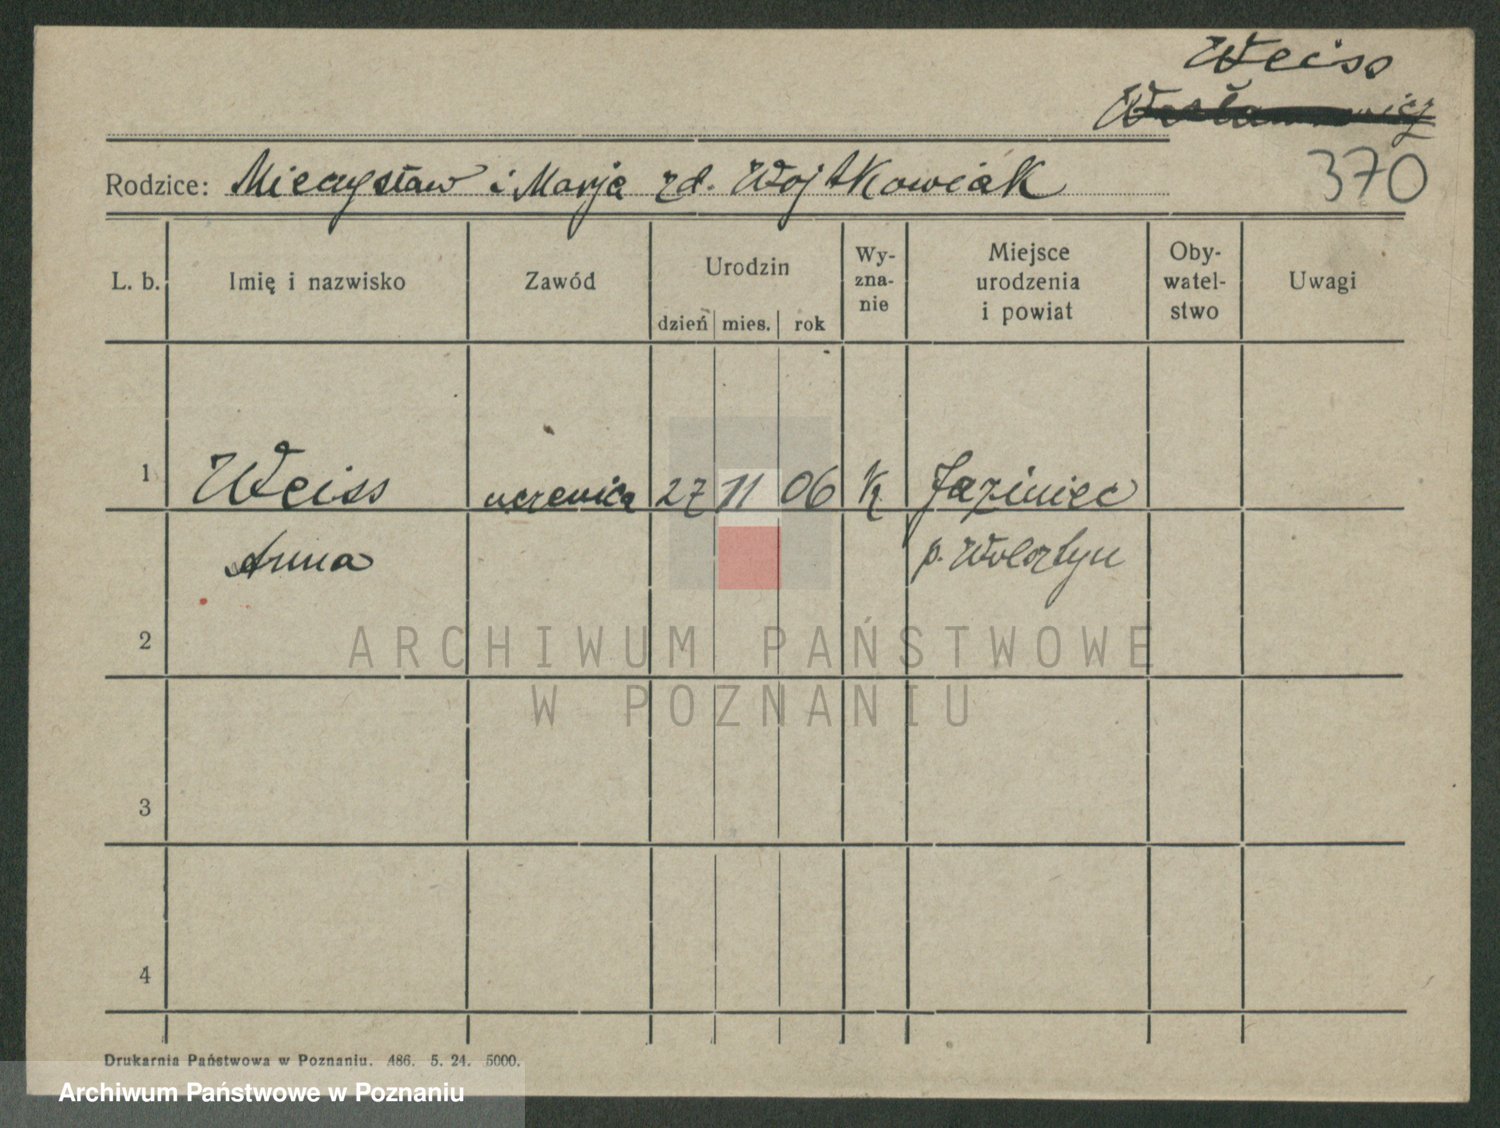 Weiss
370
Rodzice: Mieczysław i Marja zd. Wojtkowiak
L. b.
Imię i nazwisko
Zawód
Urodzin
dzień mies. rok
Wy-
zna-
nie
Miejsce
urodzenia
i powiat
Oby-
watel-
stwo
Uwagi
1 Weiss uczenica 27 11 06 K Jaziniec
Anna p. Wolsztyn
2
ARCHIWUM PAŃSTWOWE
W POZNANIU
3
4
Drukarnia Państwowa w Poznaniu. 486. 5. 24. 5000.
Archiwum Państwowe w Poznaniu